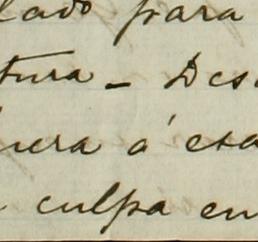 lado para
tura - Des
nera á esa
culpa en